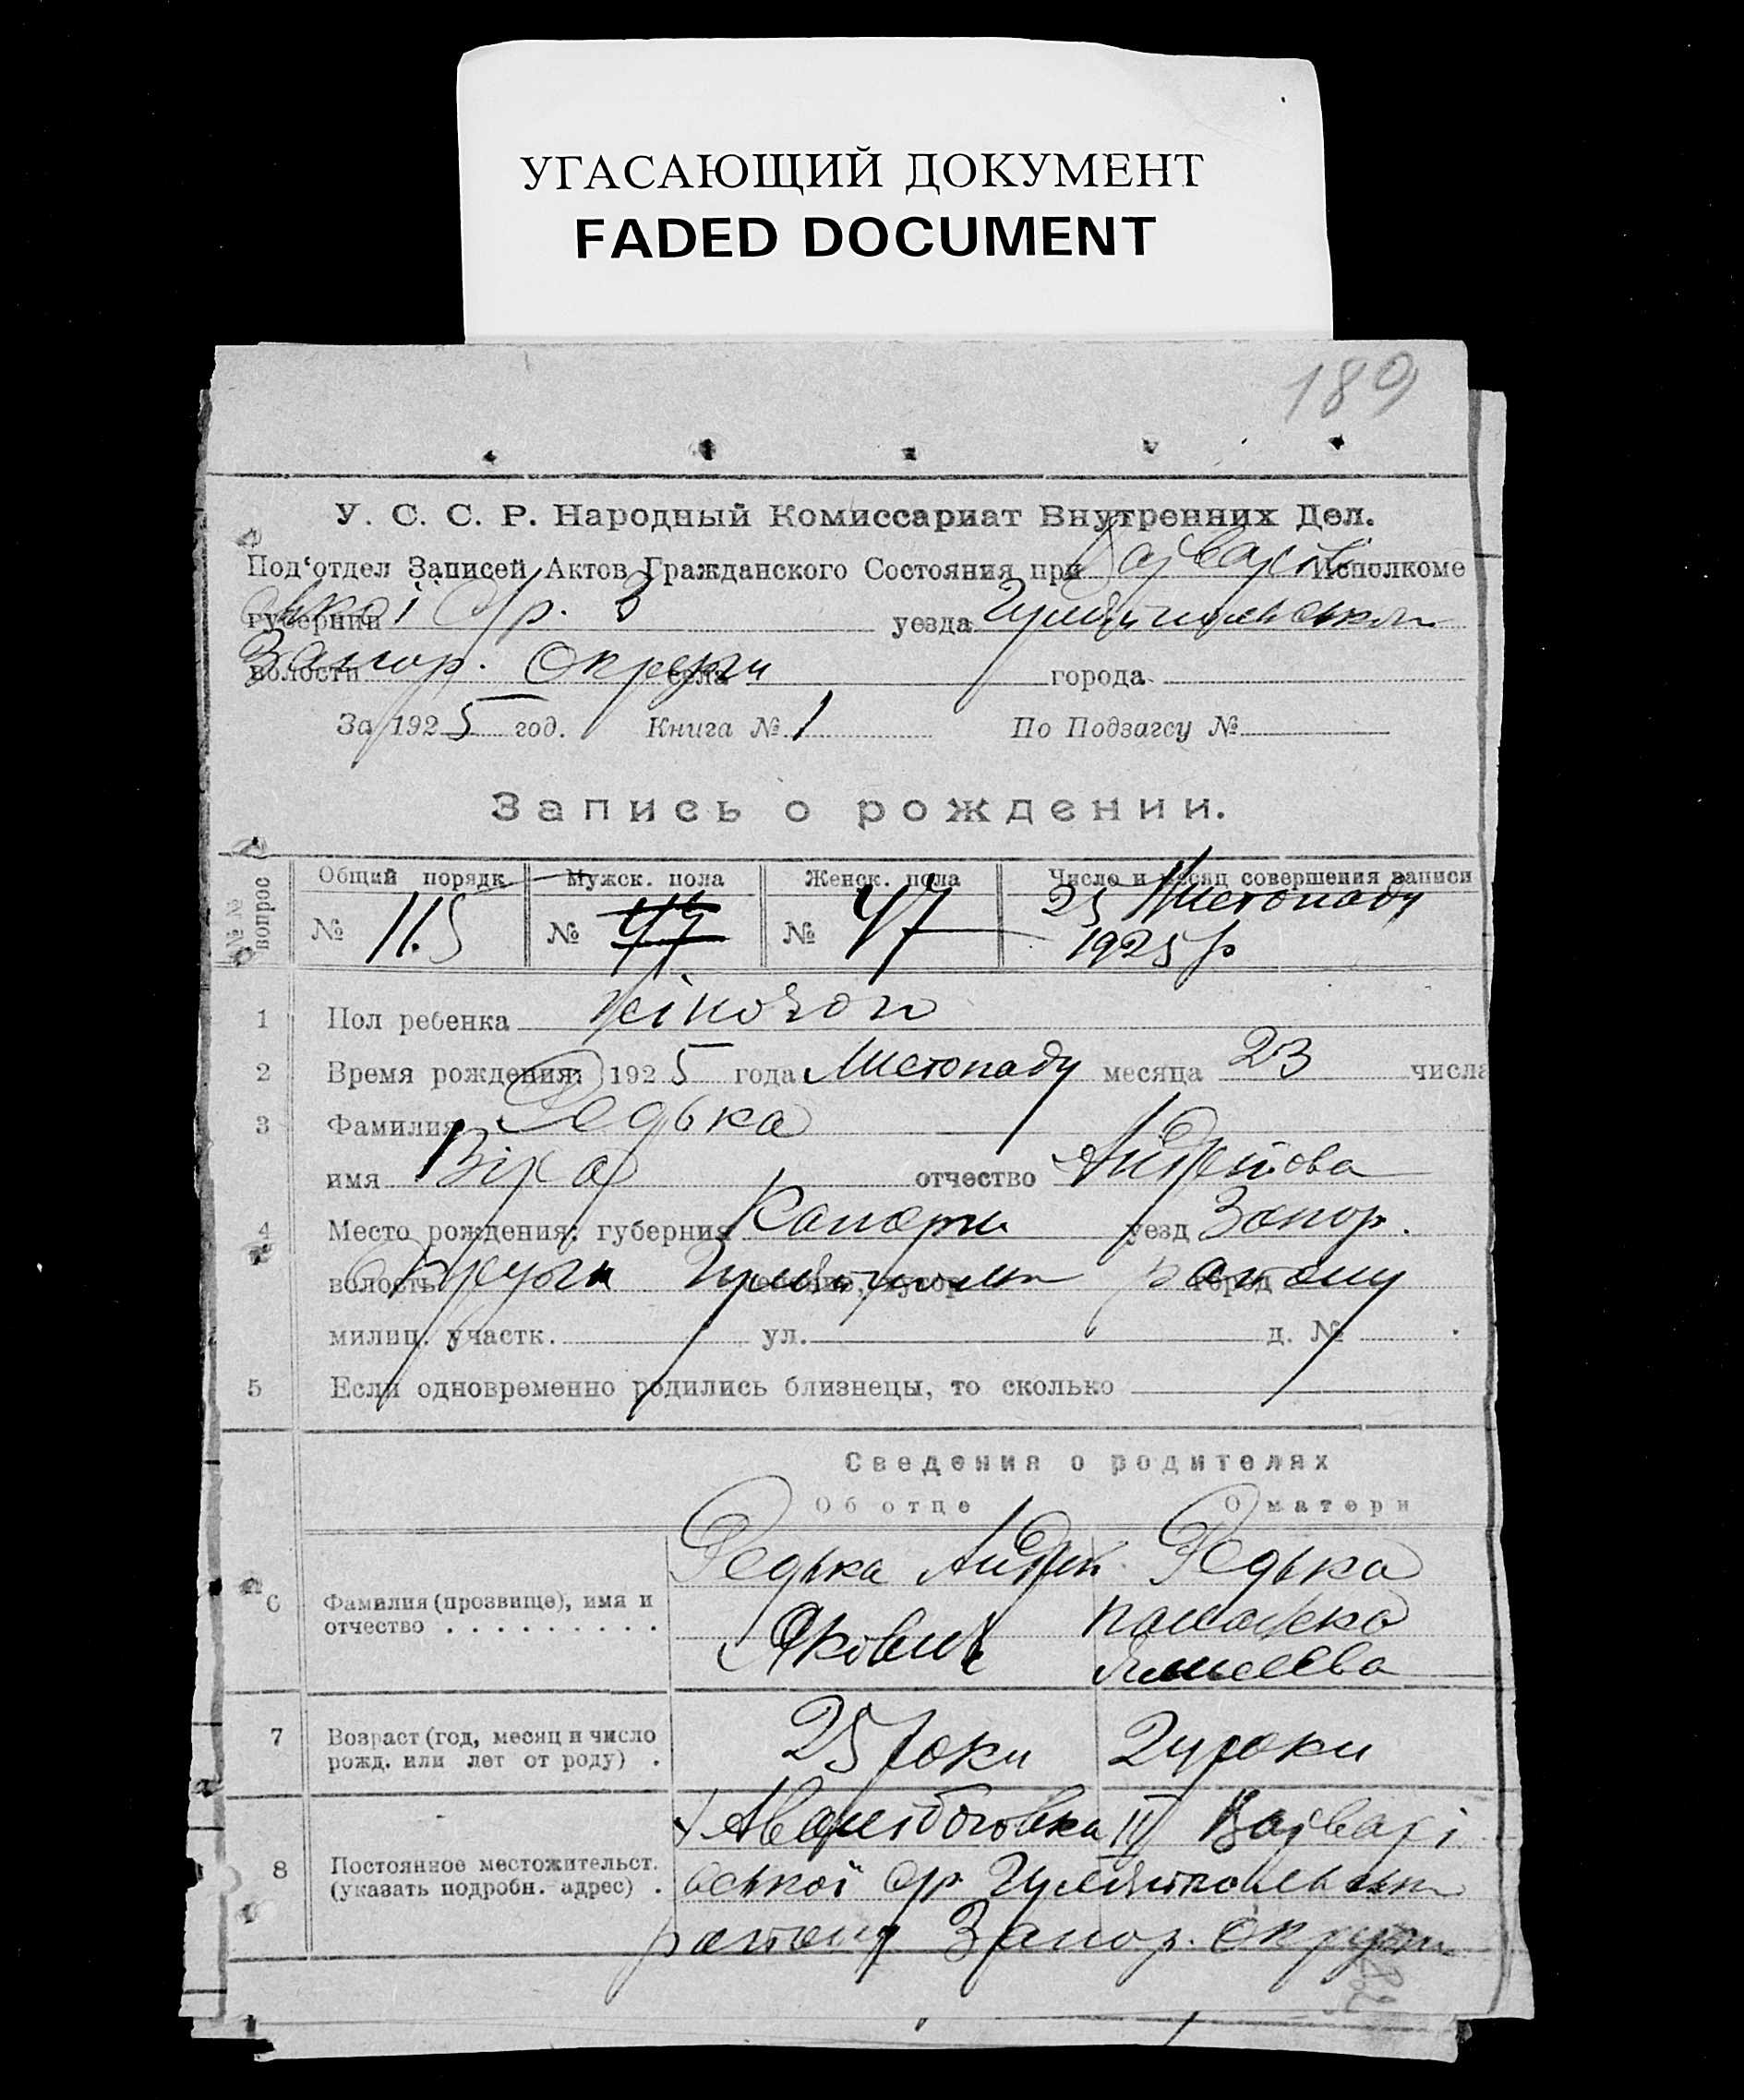 УГАСАЮЩИЙ ДОКУМЕНТ
FADED DOCUMENT
189
У. С. С. Р. Народный Комиссариат Внутренних Дел.
Под‘отдел Записей Актов Гражданского Состояния при Исполкоме
губернии С/р. З уезда
волости Запор. Округи села города
За 1925 год. Книга № 1 По Подзагсу №
Запись о рождении.
№№ вопрос Общий порядк Мужск. пола Женск. пола Число и месяц совершения записи
№ 115 № 47 № 47 25 Листопаду
1925 р
1 Пол ребенка жіночого
2 Время рождения: 1925 года Листопаду месяца 23 числа
3 Фамилия Редька
имя Віра отчество Андрієва
4 Место рождения: губерния уезд Запор.
волость Округи селение, хутор город району
милиц. участк. ул. д. №
5 Если одновременно родились близнецы, то сколько
Сведения о родителях
Об отце О матери
Редька Андрій Редька
6 Фамилия (прозвище), имя и
отчество Якович Палажка
7 Возраст (год, месяц и число
рожд. или лет от роду) . 25 роки 24 роки
8 Постоянное местожительст.
(указать подробн. адрес) . ської с/р.
району Запор. Округи